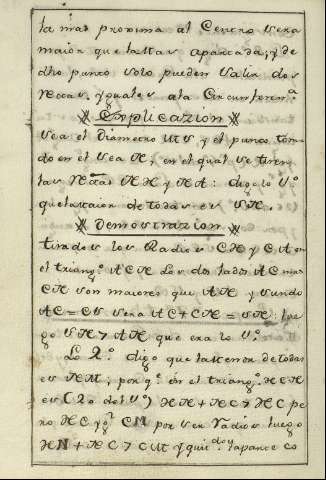 la mas proxima al Centro sera
maior que la mas apartada, y de
dho punto solo pueden salir dos
rectas, yguales ala Circunferen.ª
Explicazion
Sea el Diametro y el punto toma
do en el sea H, en el qual se tiren
las rectas HH y HA: digo lo 1.º
que la maior de todas es SH.
Demostrazion
tirados los Radios CH y CA en
el triang.º ACH los dos lados AC mas
CH son maiores que AH y siendo
AC = CS sera AC + CH = SH: lue
go SH > AH que era lo 1.º
Lo 2.º digo que la menor de todas
es HM; porq.º en el triang.º HCH
es (20 del 1.º) HH + HC > HC pe
ro HC y CM por ser radios luego
HN + HC > CM y quidoy la parte co